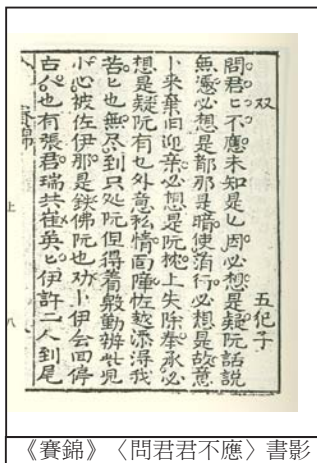 双 五犯子
問君匕不應未知是乜因必想是疑阮話說
無憑必想是鄙那是暗使消行必想是故意
卜来棄旧迎亲必想是阮枕上失除奉承必
想是疑阮有乜外意私情面障恁越添得我
苦匕也無尽到只処阮但得着殷勤辨此皃
小心被佐伊那是鉄佛阮也劝卜伊会回停
古人也有張君瑞共崔英匕伊許二人到尾
賽錦
上 八
《賽錦》〈問君君不應〉書影